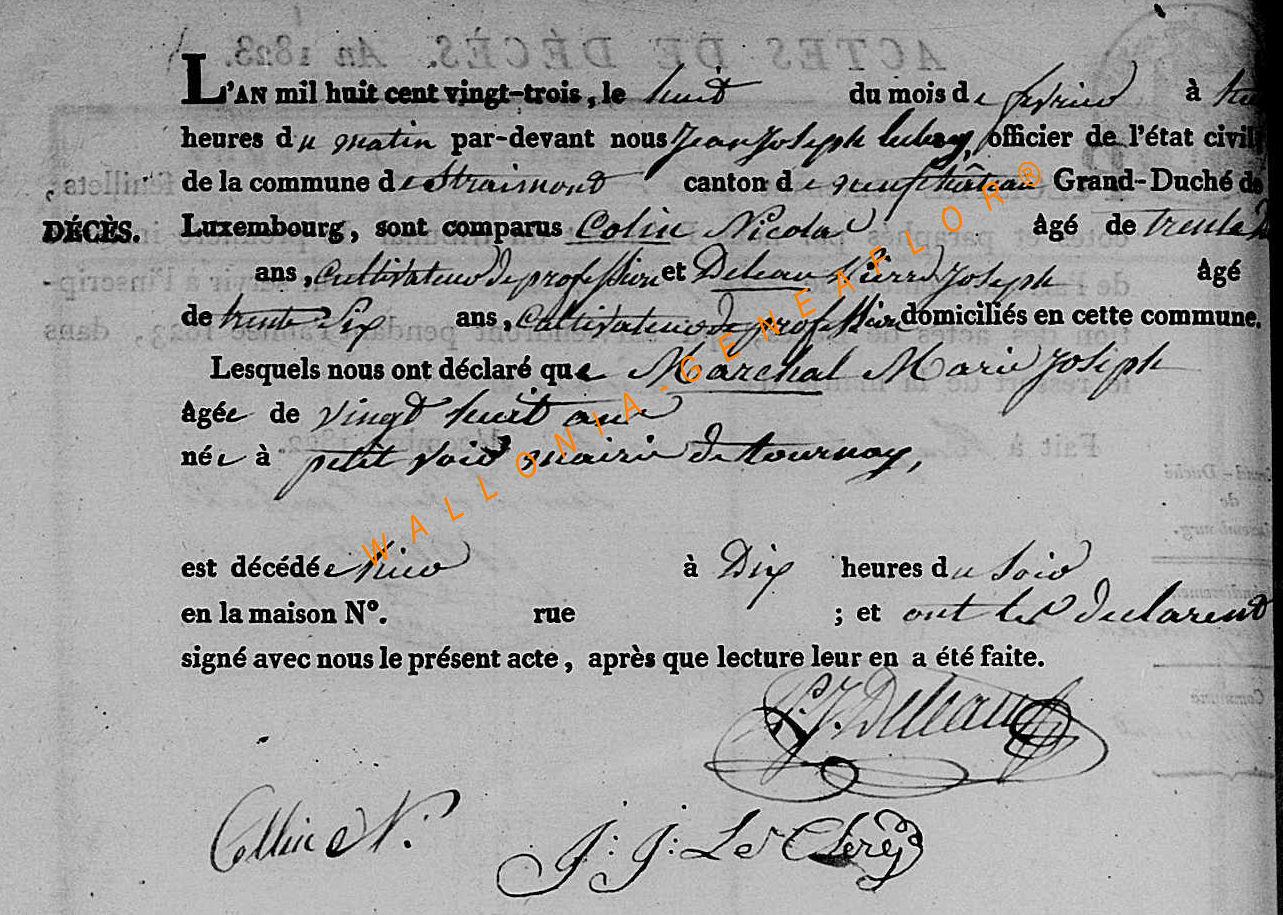 ACTES DE DÉCÈS. An 1823.
L'AN mil huit cent vingt-trois, le huit du mois de fevrier à
heures du matin par-devant nous Jean Joseph officier de l'état civil
de la commune de Straimont canton de neufchâteau Grand-Duché de
DÉCÈS. Luxembourg, sont comparus Colin Nicolas âgé de trente
ans, cultivateur de profession et Deleau Pierre Joseph âgé
de trente Six ans, cultivateur de profession domiciliés en cette commune.
Lesquels nous ont déclaré que Marchal Marie Joseph
âgée de vingt huit ans
née à petit voir mairie de tournay,
est décédée hier à Dix heures du Soir
en la maison N°. rue ; et ont les declarent
signé avec nous le présent acte, après que lecture leur en a été faite.
P. J. Deleau
Collin N.
J: J: Le Clere
WALLONIA-GENEAFLOR®